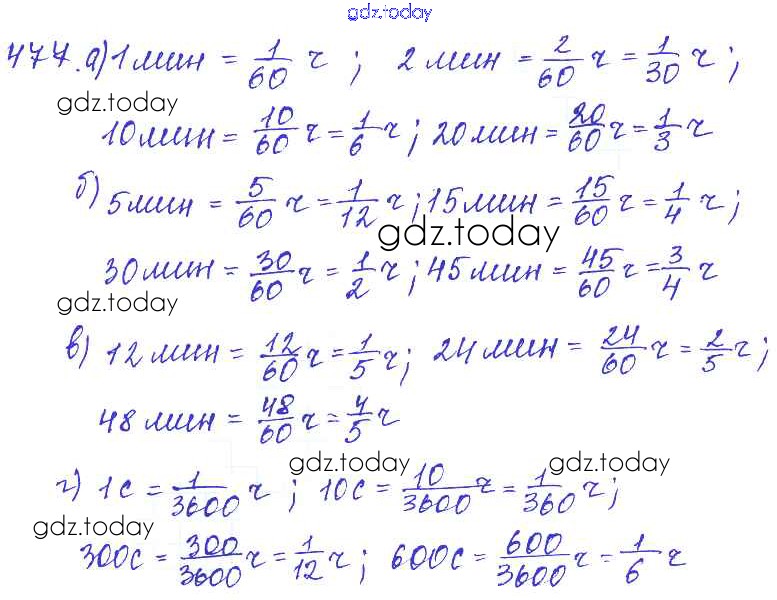 gdz.today
477. а) 1 мин = 1/60 ч ; 2 мин = 2/60 ч = 1/30 ч ;
gdz.today
10 мин = 10/60 ч = 1/6 ч ; 20 мин = 20/60 ч = 1/3 ч
б) 5 мин = 5/60 ч = 1/12 ч ; 15 мин = 15/60 ч = 1/4 ч ;
gdz.today
30 мин = 30/60 ч = 1/2 ч ; 45 мин = 45/60 ч = 3/4 ч
gdz.today
в) 12 мин = 12/60 ч = 1/5 ч ; 24 мин = 24/60 ч = 2/5 ч ;
48 мин = 48/60 ч = 4/5 ч
gdz.today gdz.today
г) 1 с = 1/3600 ч ; 10 с = 10/3600 ч = 1/360 ч ;
gdz.today
300 с = 300/3600 ч = 1/12 ч ; 600 с = 600/3600 ч = 1/6 ч